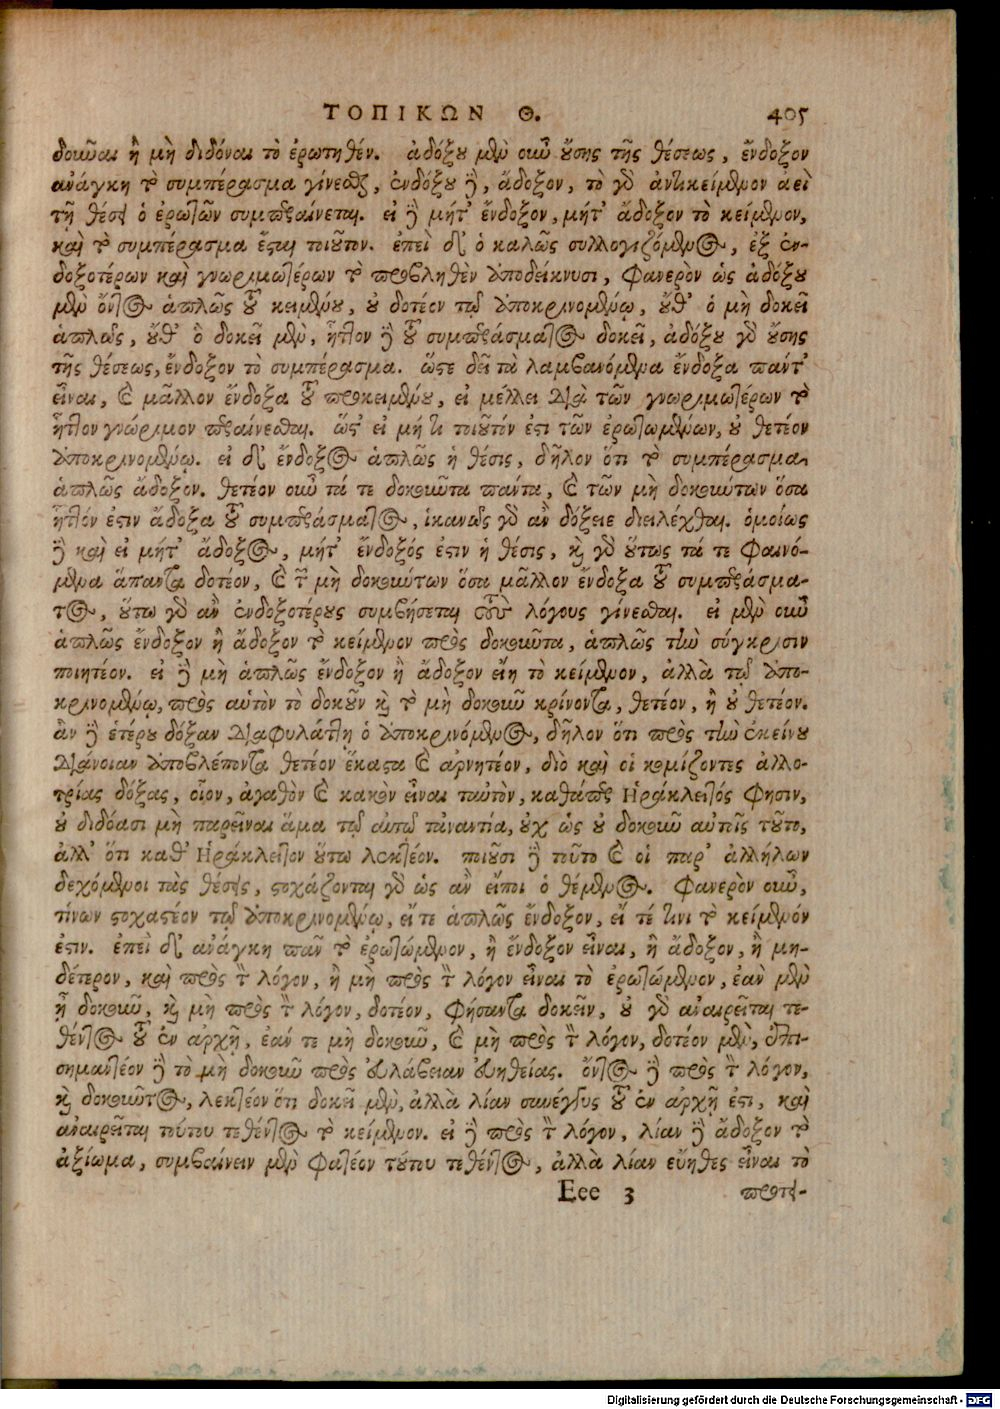 ΤΟΠΙΚΩΝ Θ. 405
δοκοῦσαν ἢ μὴ διδόναι τὸ ἐρωτηθέν. ἀδόξου μὲν οὖν οὔσης τῆς θέσεως, ἔνδοξον
ἀνάγκη τὸ συμπέρασμα γίνεσθαι, ἐνδόξου δὲ, ἄδοξον, τὸ γὰρ ἀντικείμενον ἀεὶ
τῇ θέσει ὁ ἐρωτῶν συμπεραίνεται. εἰ δὲ μήτ' ἔνδοξον, μήτ' ἄδοξον τὸ κείμενον,
καὶ τὸ συμπέρασμα ἔσται τοιοῦτον. ἐπεὶ δ' ὁ καλῶς συλλογιζόμενος, ἐξ ἐν-
δοξοτέρων καὶ γνωριμωτέρων τὸ προβληθὲν ἀποδείκνυσι, φανερὸν ὡς ἀδόξου
μὲν ὄντος ἁπλῶς τοῦ κειμένου, οὐ δοτέον τῷ ἀποκρινομένῳ, οὔθ' ὁ μὴ δοκεῖ
ἁπλῶς, οὔθ' ὃ δοκεῖ μὲν, ἧττον δὲ τοῦ συμπεράσματος δοκεῖ, ἀδόξου γὰρ οὔσης
τῆς θέσεως, ἔνδοξον τὸ συμπέρασμα. ὥστε δεῖ τὰ λαμβανόμενα ἔνδοξα πάντ'
εἶναι, καὶ μᾶλλον ἔνδοξα τοῦ προκειμένου, εἰ μέλλει διὰ τῶν γνωριμωτέρων τὸ
ἧττον γνώριμον περαίνεσθαι. ὥστ' εἰ μή τι τοιοῦτόν ἐστι τῶν ἐρωτωμένων, οὐ θετέον
ἀποκρινομένῳ. εἰ δ' ἔνδοξος ἁπλῶς ἡ θέσις, δῆλον ὅτι τὸ συμπέρασμα
ἁπλῶς ἄδοξον. θετέον οὖν τά τε δοκοῦντα πάντα, καὶ τῶν μὴ δοκούντων ὅσα
ἧττόν ἐστιν ἄδοξα τοῦ συμπεράσματος, ἱκανῶς γὰρ ἂν δόξειε διειλέχθαι. ὁμοίως
δὲ καὶ εἰ μήτ' ἄδοξος, μήτ' ἔνδοξός ἐστιν ἡ θέσις, καὶ γὰρ οὕτως τά τε φαινό-
μενα ἅπαντα δοτέον, καὶ τῶν μὴ δοκούντων ὅσα μᾶλλον ἔνδοξα τοῦ συμπεράσμα-
τος, οὕτω γὰρ ἂν ἐνδοξοτέρους συμβήσεται τοὺς λόγους γίνεσθαι. εἰ μὲν οὖν
ἁπλῶς ἔνδοξον ἢ ἄδοξον τὸ κείμενον πρὸς δοκοῦντα, ἁπλῶς τὴν σύγκρισιν
ποιητέον. εἰ δὲ μὴ ἁπλῶς ἔνδοξον ἢ ἄδοξον εἴη τὸ κείμενον, ἀλλὰ τῷ ἀπο-
κρινομένῳ, πρὸς αὑτὸν τὸ δοκοῦν καὶ τὸ μὴ δοκοῦν κρίνοντα, θετέον, ἢ οὐ θετέον.
ἂν δὲ ἑτέρου δόξαν διαφυλάττῃ ὁ ἀποκρινόμενος, δῆλον ὅτι πρὸς τὴν ἐκείνου
διάνοιαν ἀποβλέποντα θετέον ἕκαστα καὶ ἀρνητέον, διὸ καὶ οἱ κομίζοντες ἀλλο-
τρίας δόξας, οἷον, ἀγαθὸν καὶ κακὸν εἶναι ταὐτὸν, καθάπερ Ἡράκλειτός φησιν,
οὐ διδόασι μὴ παρεῖναι ἅμα τῷ αὐτῷ τἀναντία, οὐχ ὡς οὐ δοκοῦν αὐτοῖς τοῦτο,
ἀλλ' ὅτι καθ' Ἡράκλειτον οὕτω λεκτέον. ποιοῦσι δὲ τοῦτο καὶ οἱ παρ' ἀλλήλων
δεχόμενοι τὰς θέσεις, στοχάζονται γὰρ ὡς ἂν εἴποι ὁ θέμενος. Φανερὸν οὖν,
τίνων στοχαστέον τῷ ἀποκρινομένῳ, εἴ τε ἁπλῶς ἔνδοξον, εἴ τέ τινι τὸ κείμενόν
ἐστιν. ἐπεὶ δ' ἀνάγκη πᾶν τὸ ἐρωτώμενον, ἢ ἔνδοξον εἶναι, ἢ ἄδοξον, ἢ μη-
δέτερον, καὶ πρὸς τὸν λόγον, ἢ μὴ πρὸς τὸν λόγον εἶναι τὸ ἐρωτώμενον, ἐὰν μὲν
ᾖ δοκοῦν, καὶ μὴ πρὸς τὸν λόγον, δοτέον, φήσαντα δοκεῖν, οὐ γὰρ ἀναιρεῖται τε-
θέντος τοῦ ἐν ἀρχῇ, ἐάν τε μὴ δοκοῦν, καὶ μὴ πρὸς τὸν λόγον, δοτέον μὲν, ἐπι-
σημαντέον δὲ τὸ μὴ δοκοῦν πρὸς εὐλάβειαν εὐηθείας. ὄντος δὲ πρὸς τὸν λόγον,
καὶ δοκοῦντος, λεκτέον ὅτι δοκεῖ μὲν, ἀλλὰ λίαν σύνεγγυς τοῦ ἐν ἀρχῇ ἐστι, καὶ
ἀναιρεῖται τούτου τεθέντος τὸ κείμενον. εἰ δὲ πρὸς τὸν λόγον, λίαν δὲ ἄδοξον τὸ
ἀξίωμα, συμβαίνειν μὲν φατέον τούτου τεθέντος, ἀλλὰ λίαν εὔηθες εἶναι τὸ
Eee 3 προτει-
Digitalisierung gefördert durch die Deutsche Forschungsgemeinschaft - DFG